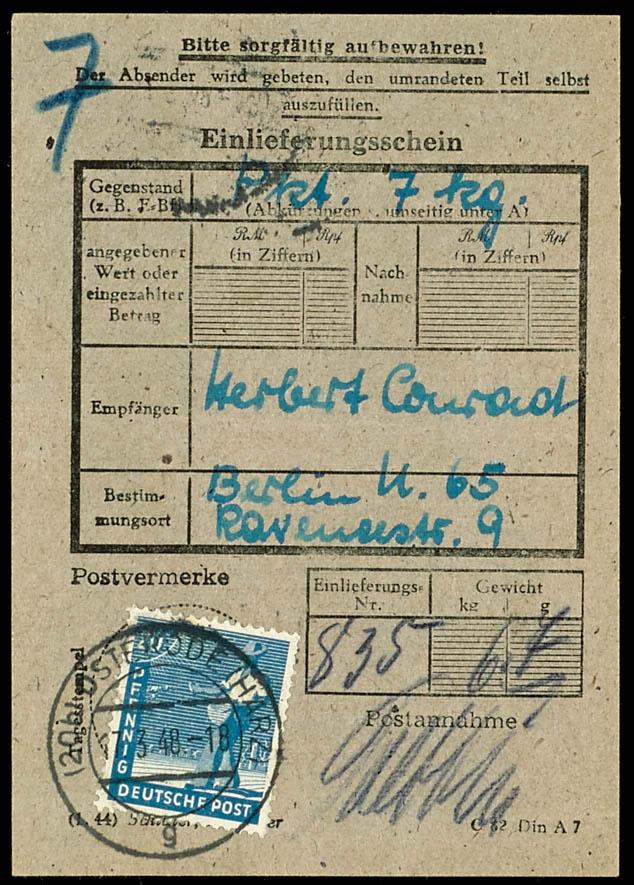 7
Bitte sorgfältig aufbewahren!
Der Absender wird gebeten, den umrandeten Teil selbst
auszufüllen.
Einlieferungsschein
Gegenstand
(z. B. F-Bf)
Pkt. 7 kg.
(Abkürzungen s. umseitig unter A)
angegebener
Wert oder
eingezahlter
Betrag
RM Rpf
(in Ziffern)
Nach-
nahme
RM Rpf
(in Ziffern)
Empfänger
Herbert Conrad
Bestim-
mungsort
Berlin N. 65
Ravenéstr. 9
Postvermerke
Einlieferungs-
Nr.
Gewicht
kg g
835
6,7
Postannahme
Tagesstempel
(20b) OSTERODE (HARZ)
3.48.-18
g
PFENNIG
DEUTSCHE POST
C 82 Din A 7